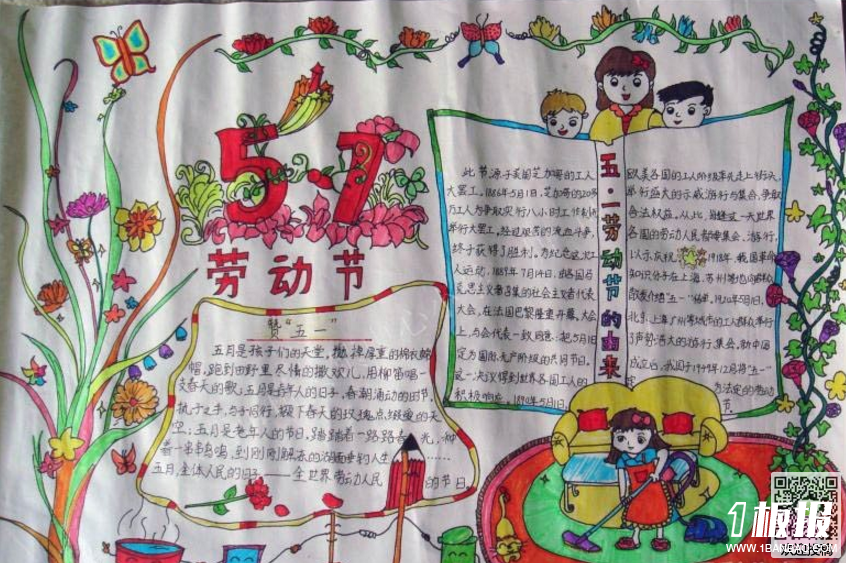 5 1
劳动节
赞“五一”
五月是孩子们的天堂,撒掉厚重的棉衣棉
帽,跑到田野里尽情的撒欢儿,用柳笛唱一
支春天的歌;五月是青年人的日子,春潮涌动的时节,
执子之手,与子同行,撷下春天的玫瑰点缀爱的天
空;五月是老年人的节日,踏踏着一路路春光,种
着一串串鸟鸣,到刚刚解冻的湖面垂钓人生……
五月,全体人民的日子——全世界劳动人民的节日
五·一劳动节的由来
此节源于美国芝加哥的工人
大罢工。1886年5月1日,芝加哥的20多
万工人为争取实行八小时工作制
举行大罢工,经过艰苦的流血斗争,
终于获得了胜利。为纪念这次工
人运动,1889年7月14日,由各国马
克思主义者召集的社会主义者代表
大会,在法国巴黎隆重开幕。大会
上,与会代表一致同意:把5月1日
定为国际无产阶级的共同节日。
这一决议得到世界各国工人的
积极响应。1890年5月1日,
欧美各国的工人阶级率先走上街头,
举行盛大的示威游行与集会,争取
合法权益。从此,每逢这一天世界
各国的劳动人民都要集会、游行,
以示庆祝。1918年,我国革命
知识分子在上海、苏州等地向群众
散发介绍“五一”传单。1920年5月1日,
北京、上海、广州等城市的工人群众举行
了声势浩大的游行、集会。新中国
成立后,我国于1949年12月将“五一”
定为法定的劳动
节。
1板报
WWW.1BANBAO.COM